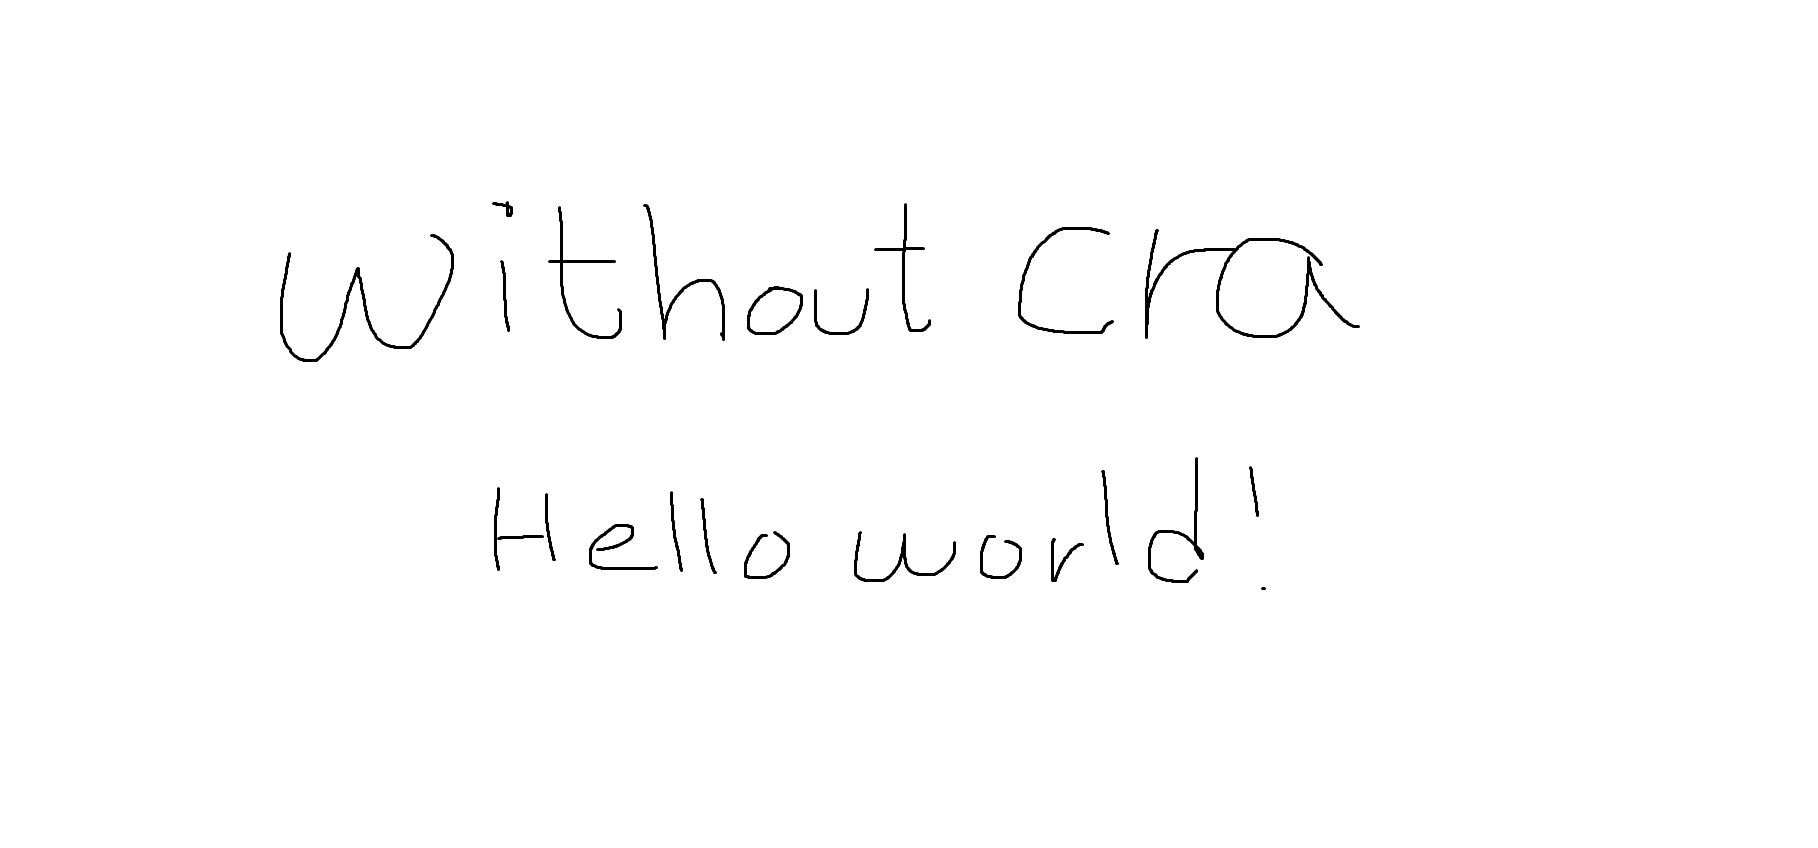 without cra
Hello world!